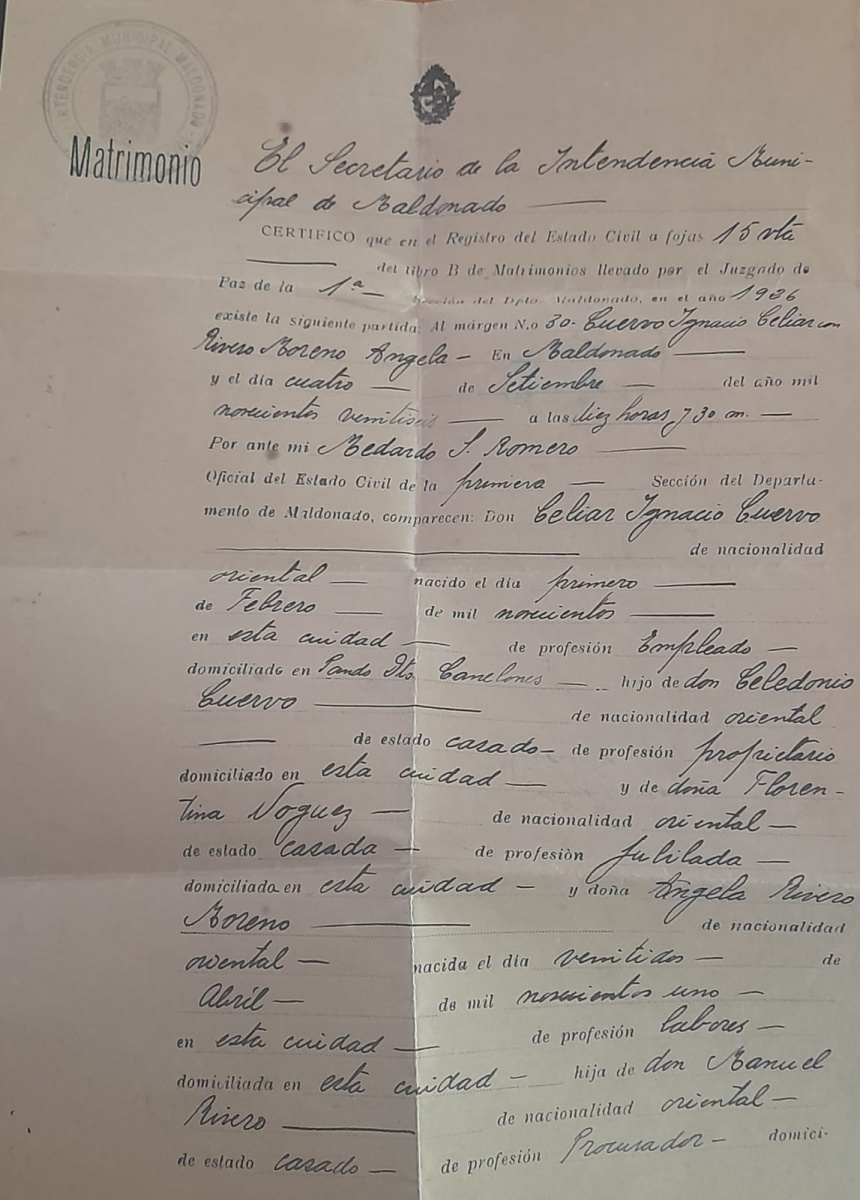 INTENDENCIA MUNICIPAL MALDONADO
Matrimonio
El Secretario de la Intendencia Muni-
cipal de Maldonado —
CERTIFICO que en el Registro del Estado Civil a fojas 15 vta
— del libro B de Matrimonios llevado por el Juzgado de
Paz de la 1ª — Sección del Dpto. Maldonado, en el año 1926
existe la siguiente partida: Al márgen N.o 30- Cuervo Ignacio Celiar con
Rivero Moreno Angela - En Maldonado —
y el día cuatro — de Setiembre — del año mil
novecientos veintiseis — a las diez horas y 30 m. —
Por ante mi Medardo S. Romero —
Oficial del Estado Civil de la primera — Sección del Departa-
mento de Maldonado, comparecen: Don Celiar Ignacio Cuervo
— de nacionalidad
oriental — nacido el día primero —
de Febrero — de mil novecientos —
en esta ciudad — de profesión Empleado —
domiciliado en Pando Dto. Canelones — hijo de don Celedonio
Cuervo — de nacionalidad oriental
— de estado casado — de profesión propietario
domiciliado en esta ciudad — y de doña Floren-
tina Noguez — de nacionalidad oriental —
de estado casada — de profesión jubilada —
domiciliada en esta ciudad — y doña Angela Rivero
Moreno — de nacionalidad
oriental — nacida el día veintidos — de
Abril — de mil novecientos uno —
en esta ciudad — de profesión labores —
domiciliada en esta ciudad — hija de don Manuel
Rivero — de nacionalidad oriental —
de estado casado — de profesión Procurador — domici-